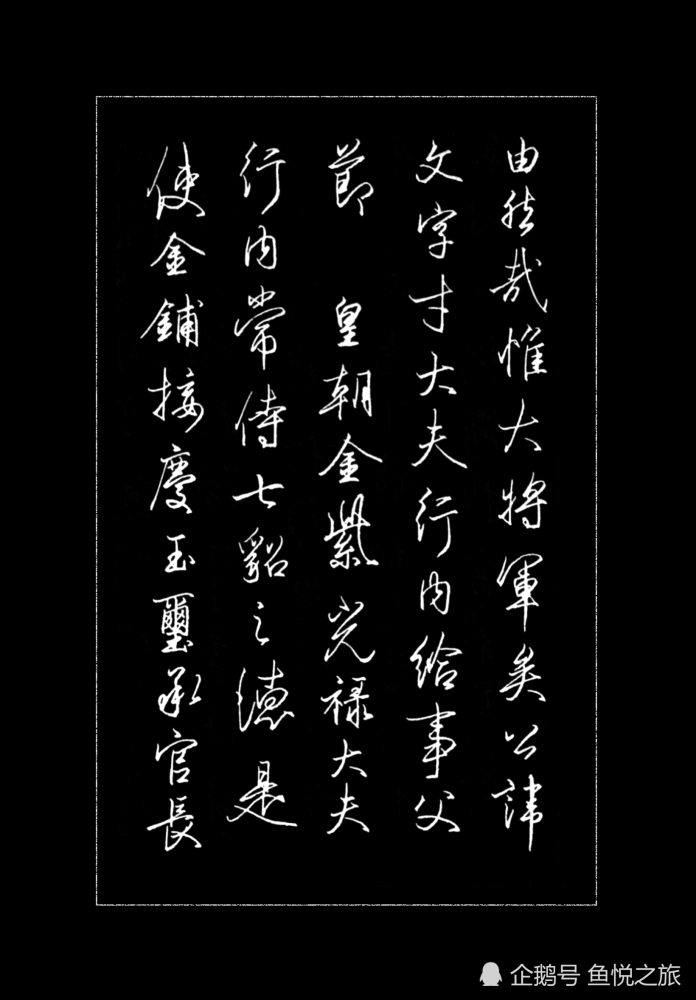 由然哉惟大將軍矣公諱
文字才大夫行内給事父
節 皇朝金紫光禄大夫
行内常侍七貂之德是
使金鋪接慶玉璽承官長
企鹅号 鱼悦之旅